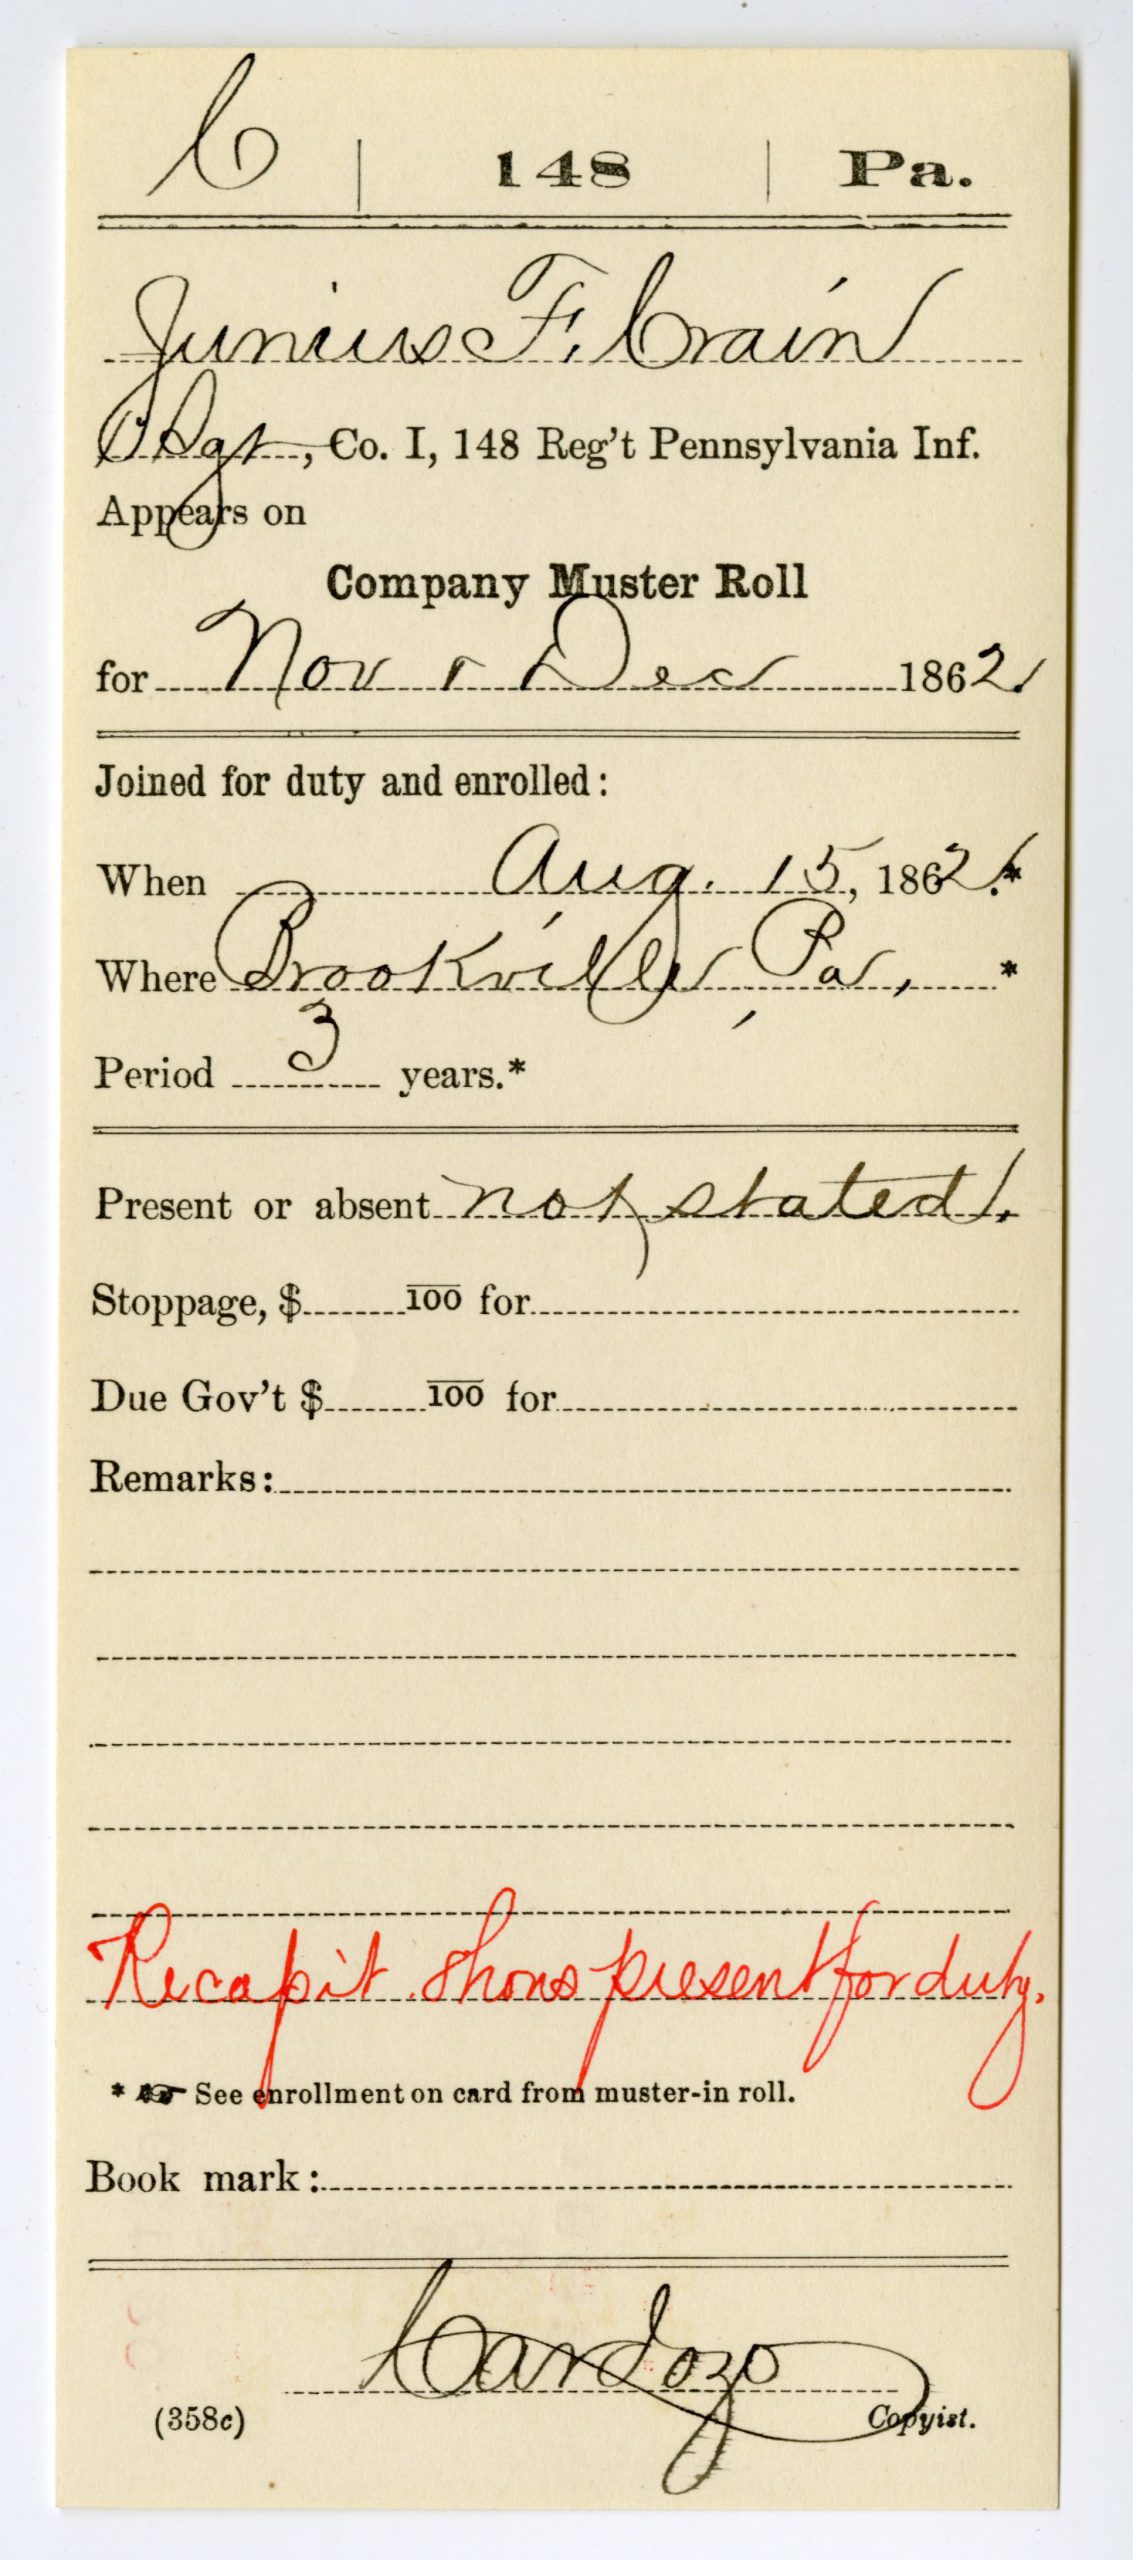 C | 148 | Pa.
Junius F. Crain
1 Sgt, Co. I, 148 Reg't Pennsylvania Inf.
Appears on
Company Muster Roll
for Nov & Dec 1862.
Joined for duty and enrolled:
When Aug. 15, 1862.*
Where Brookville, Pa, *
Period 3 years.*
Present or absent not stated.
Stoppage, $ 100 for
Due Gov't $ 100 for
Remarks:
Recapit. shows present for duty.
* ☞ See enrollment on card from muster-in roll.
Book mark:
Cardozo
(358c) Copyist.